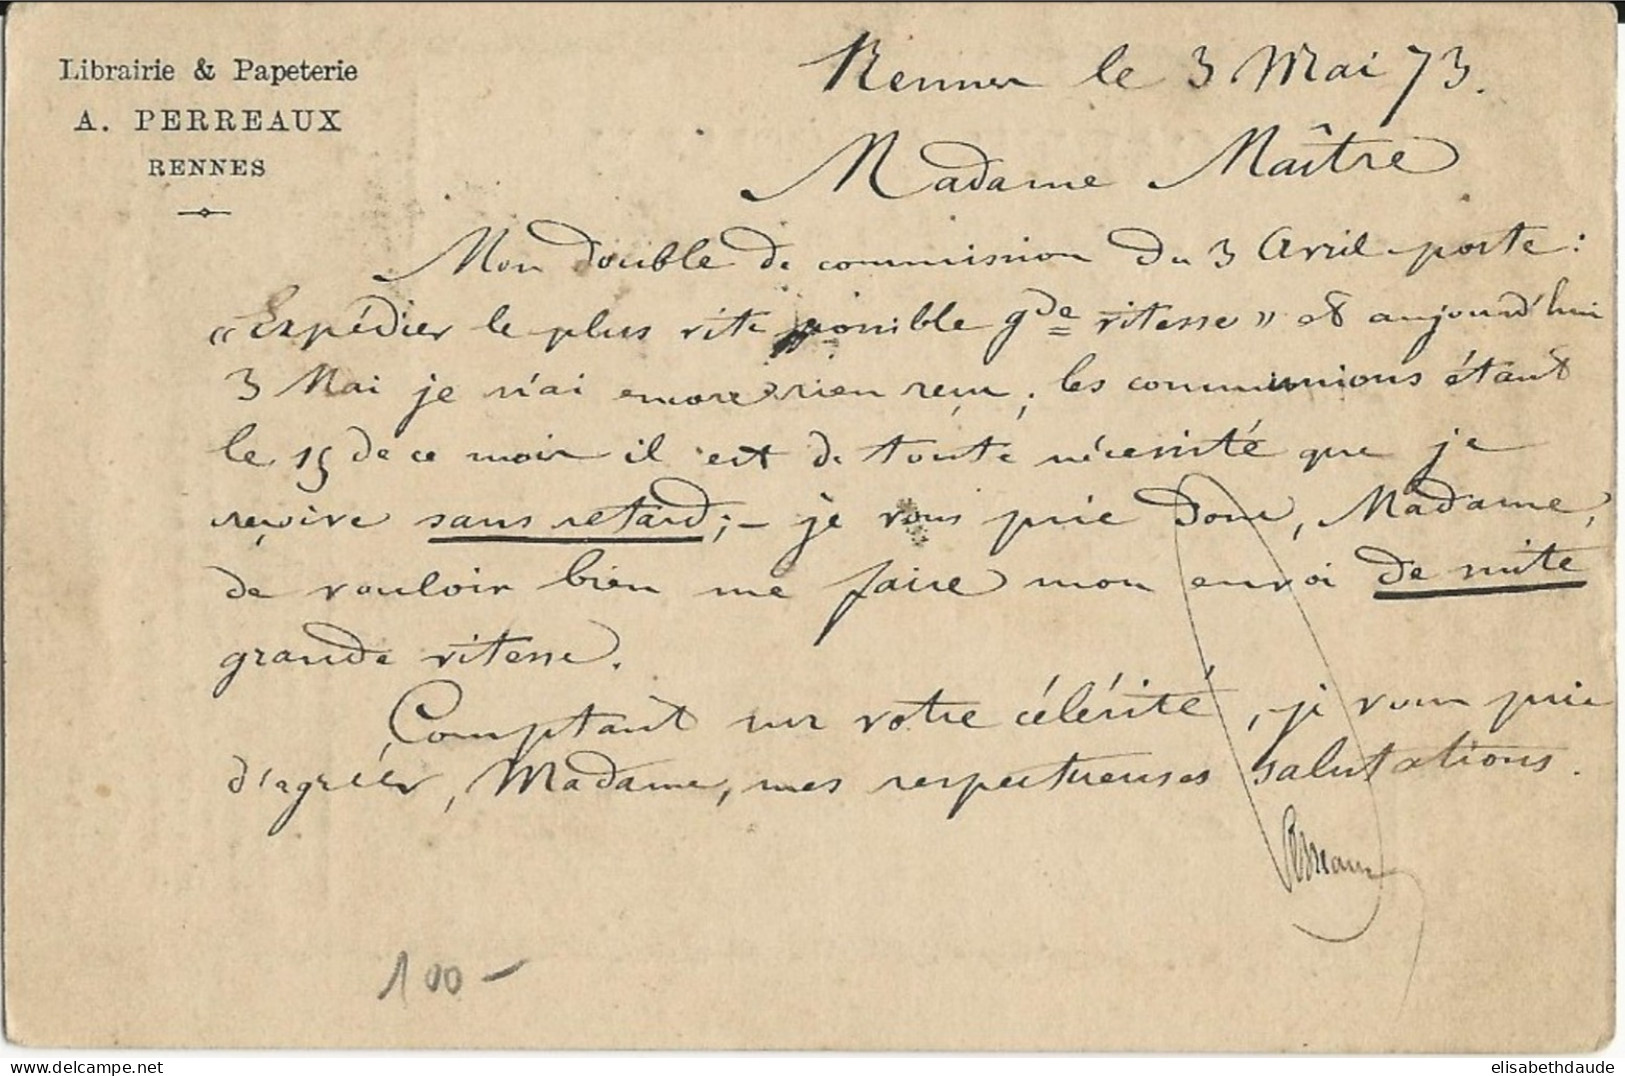 Librairie & Papeterie
A. PERREAUX
RENNES
Rennes le 3 Mai 73.
Madame Maître
Mon double de commission du 3 Avril porte :
"Expédier le plus vite possible gde vitesse" et aujourd'hui
3 Mai je n'ai encore rien reçu ; les communions étant
le 15 de ce mois il est de toute nécessité que je
reçoive sans retard ; – je vous prie donc, Madame,
de vouloir bien me faire mon envoi de suite
grande vitesse.
Comptant sur votre célérité, je vous prie
d'agréer, Madame, mes respectueuses salutations.
Perreaux
100 -
delcampe.net
elisabethdaude